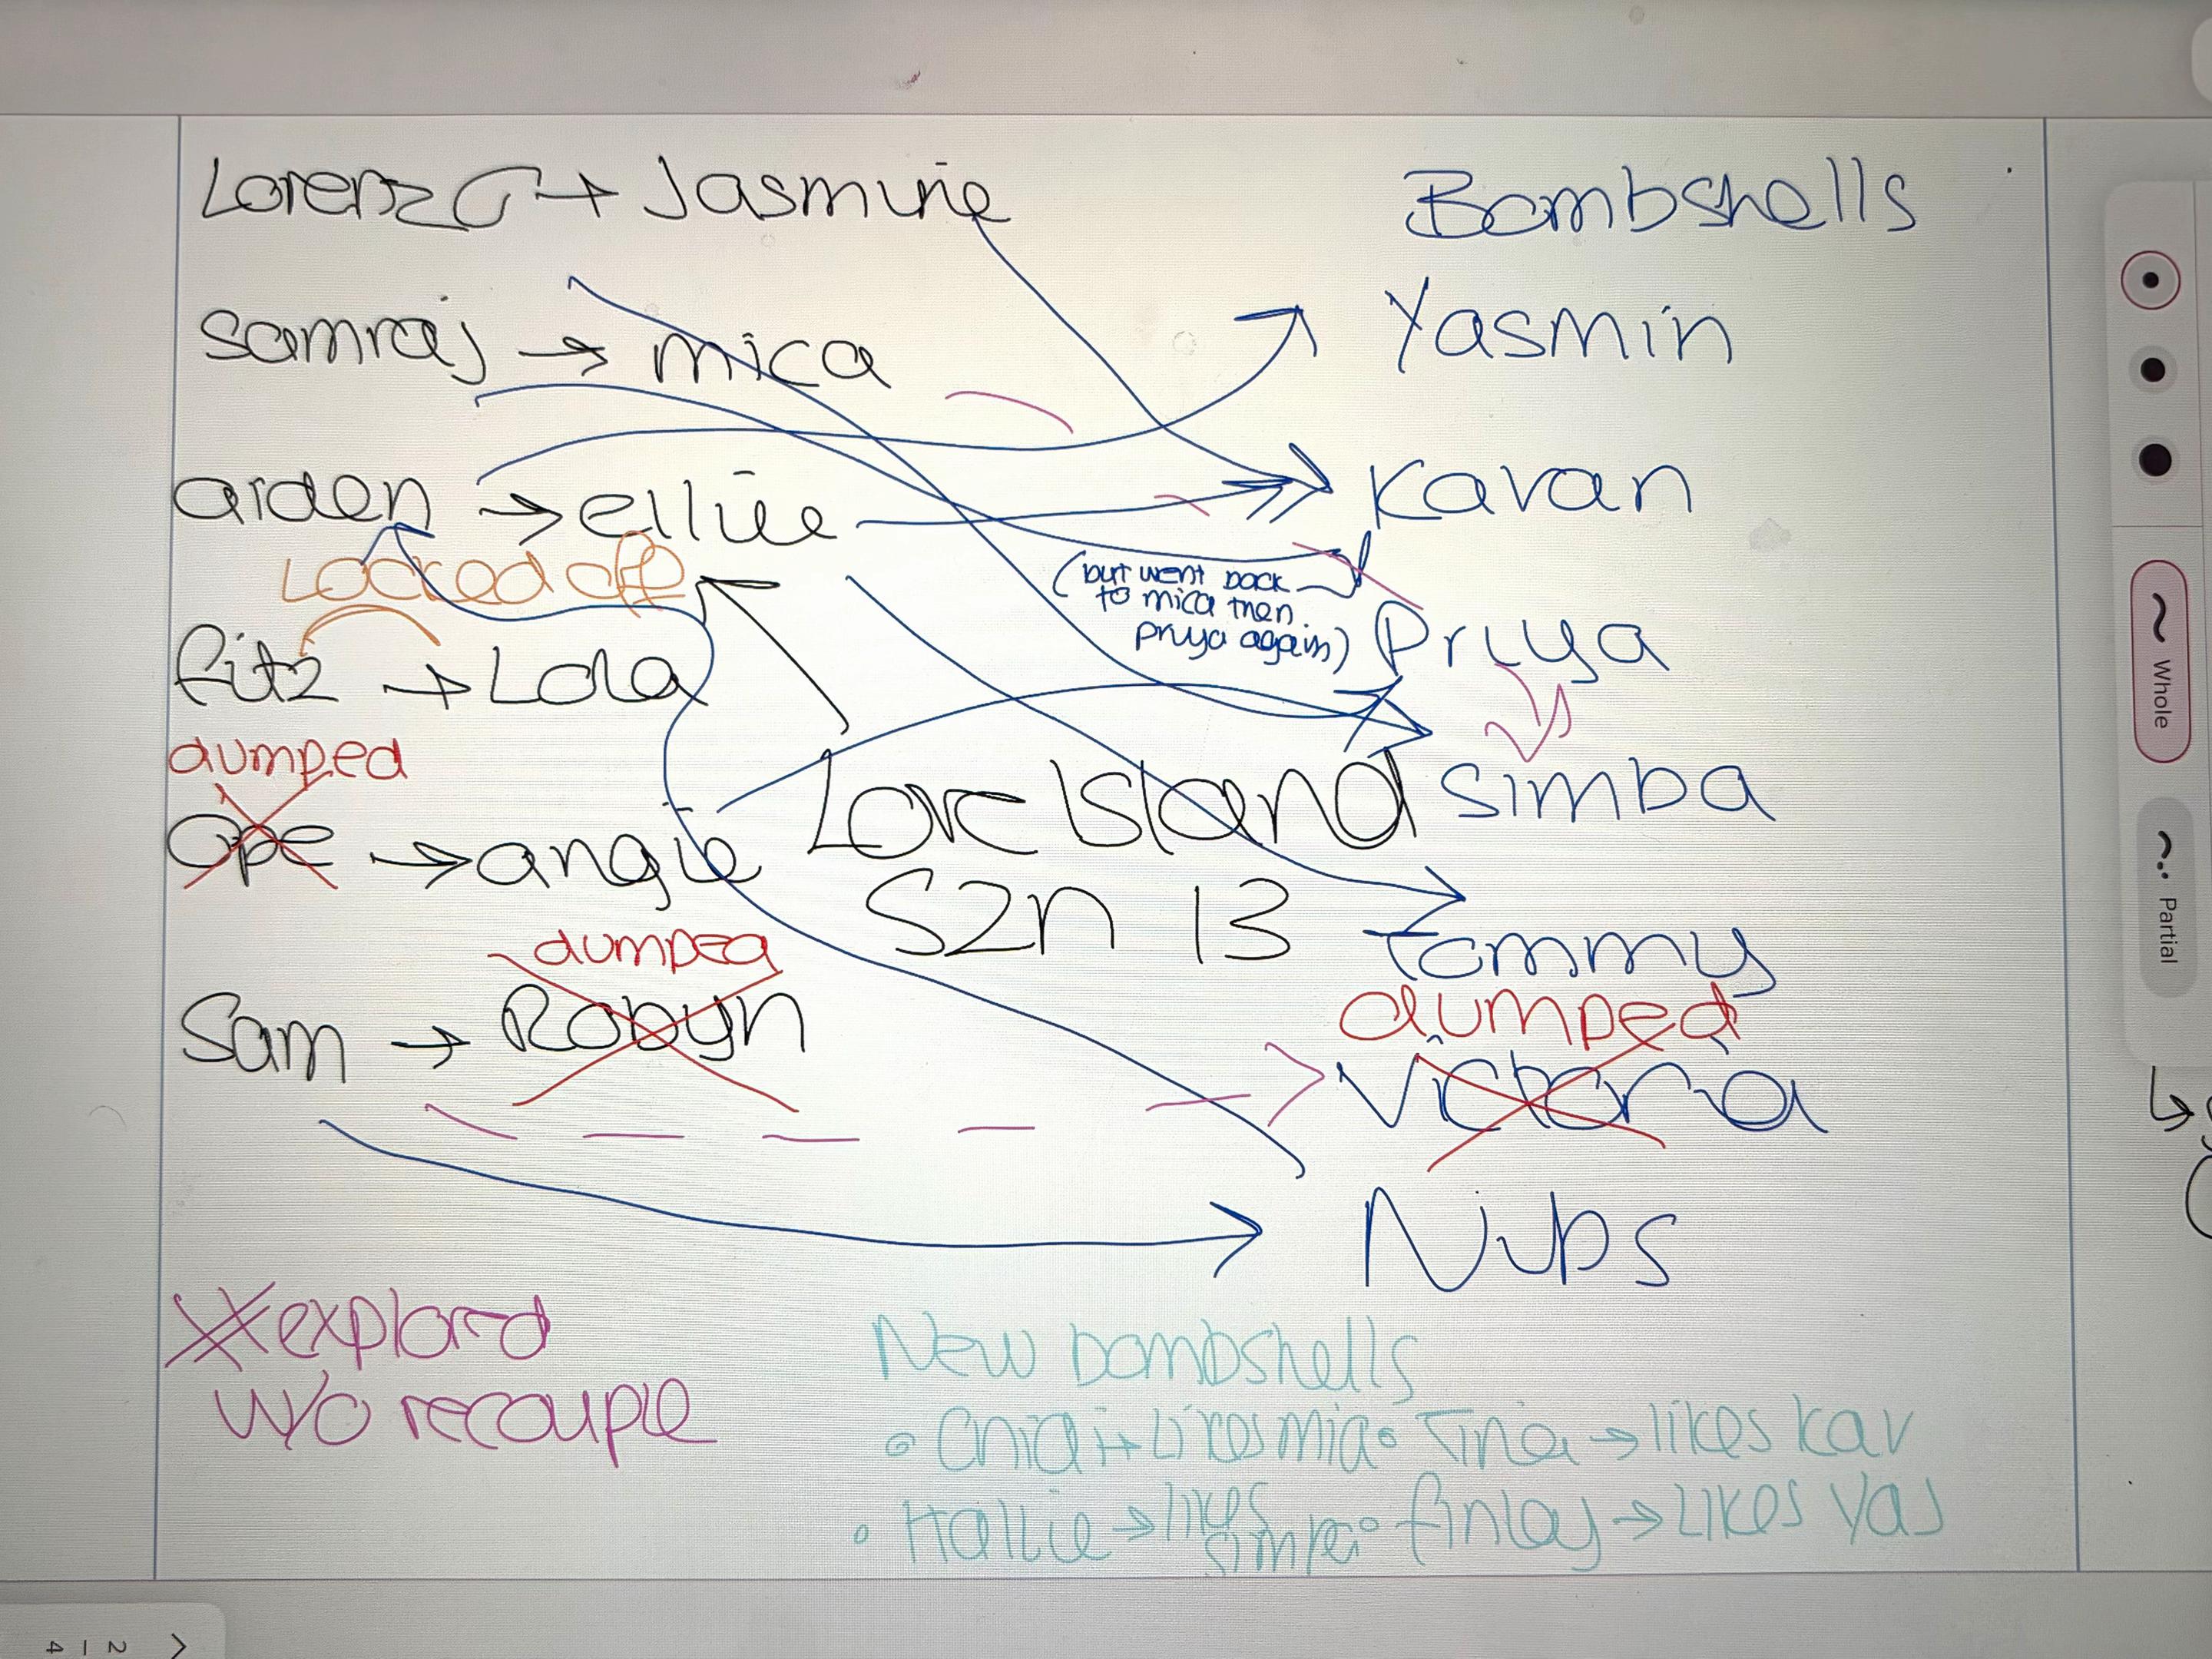 Lorenzo → Jasmine
Bombshells
samraj → mica
Yasmin
aiden → ellie
Kavan
Locked off
(but went back
to mica then
priya again)
Priya
fitz → Lola
simba
dumped
Ope → angie
Love Island
SZN 13
tommy
dumped
Sam → Robyn
dumped
Victoria
Nips
*explored
w/o recouple
New bombshells
• Chidi → Likes mia • Tina → likes kav
• Hallie → likes
simba • finlay → LIKES Yas
Whole
Partial
2 | 4